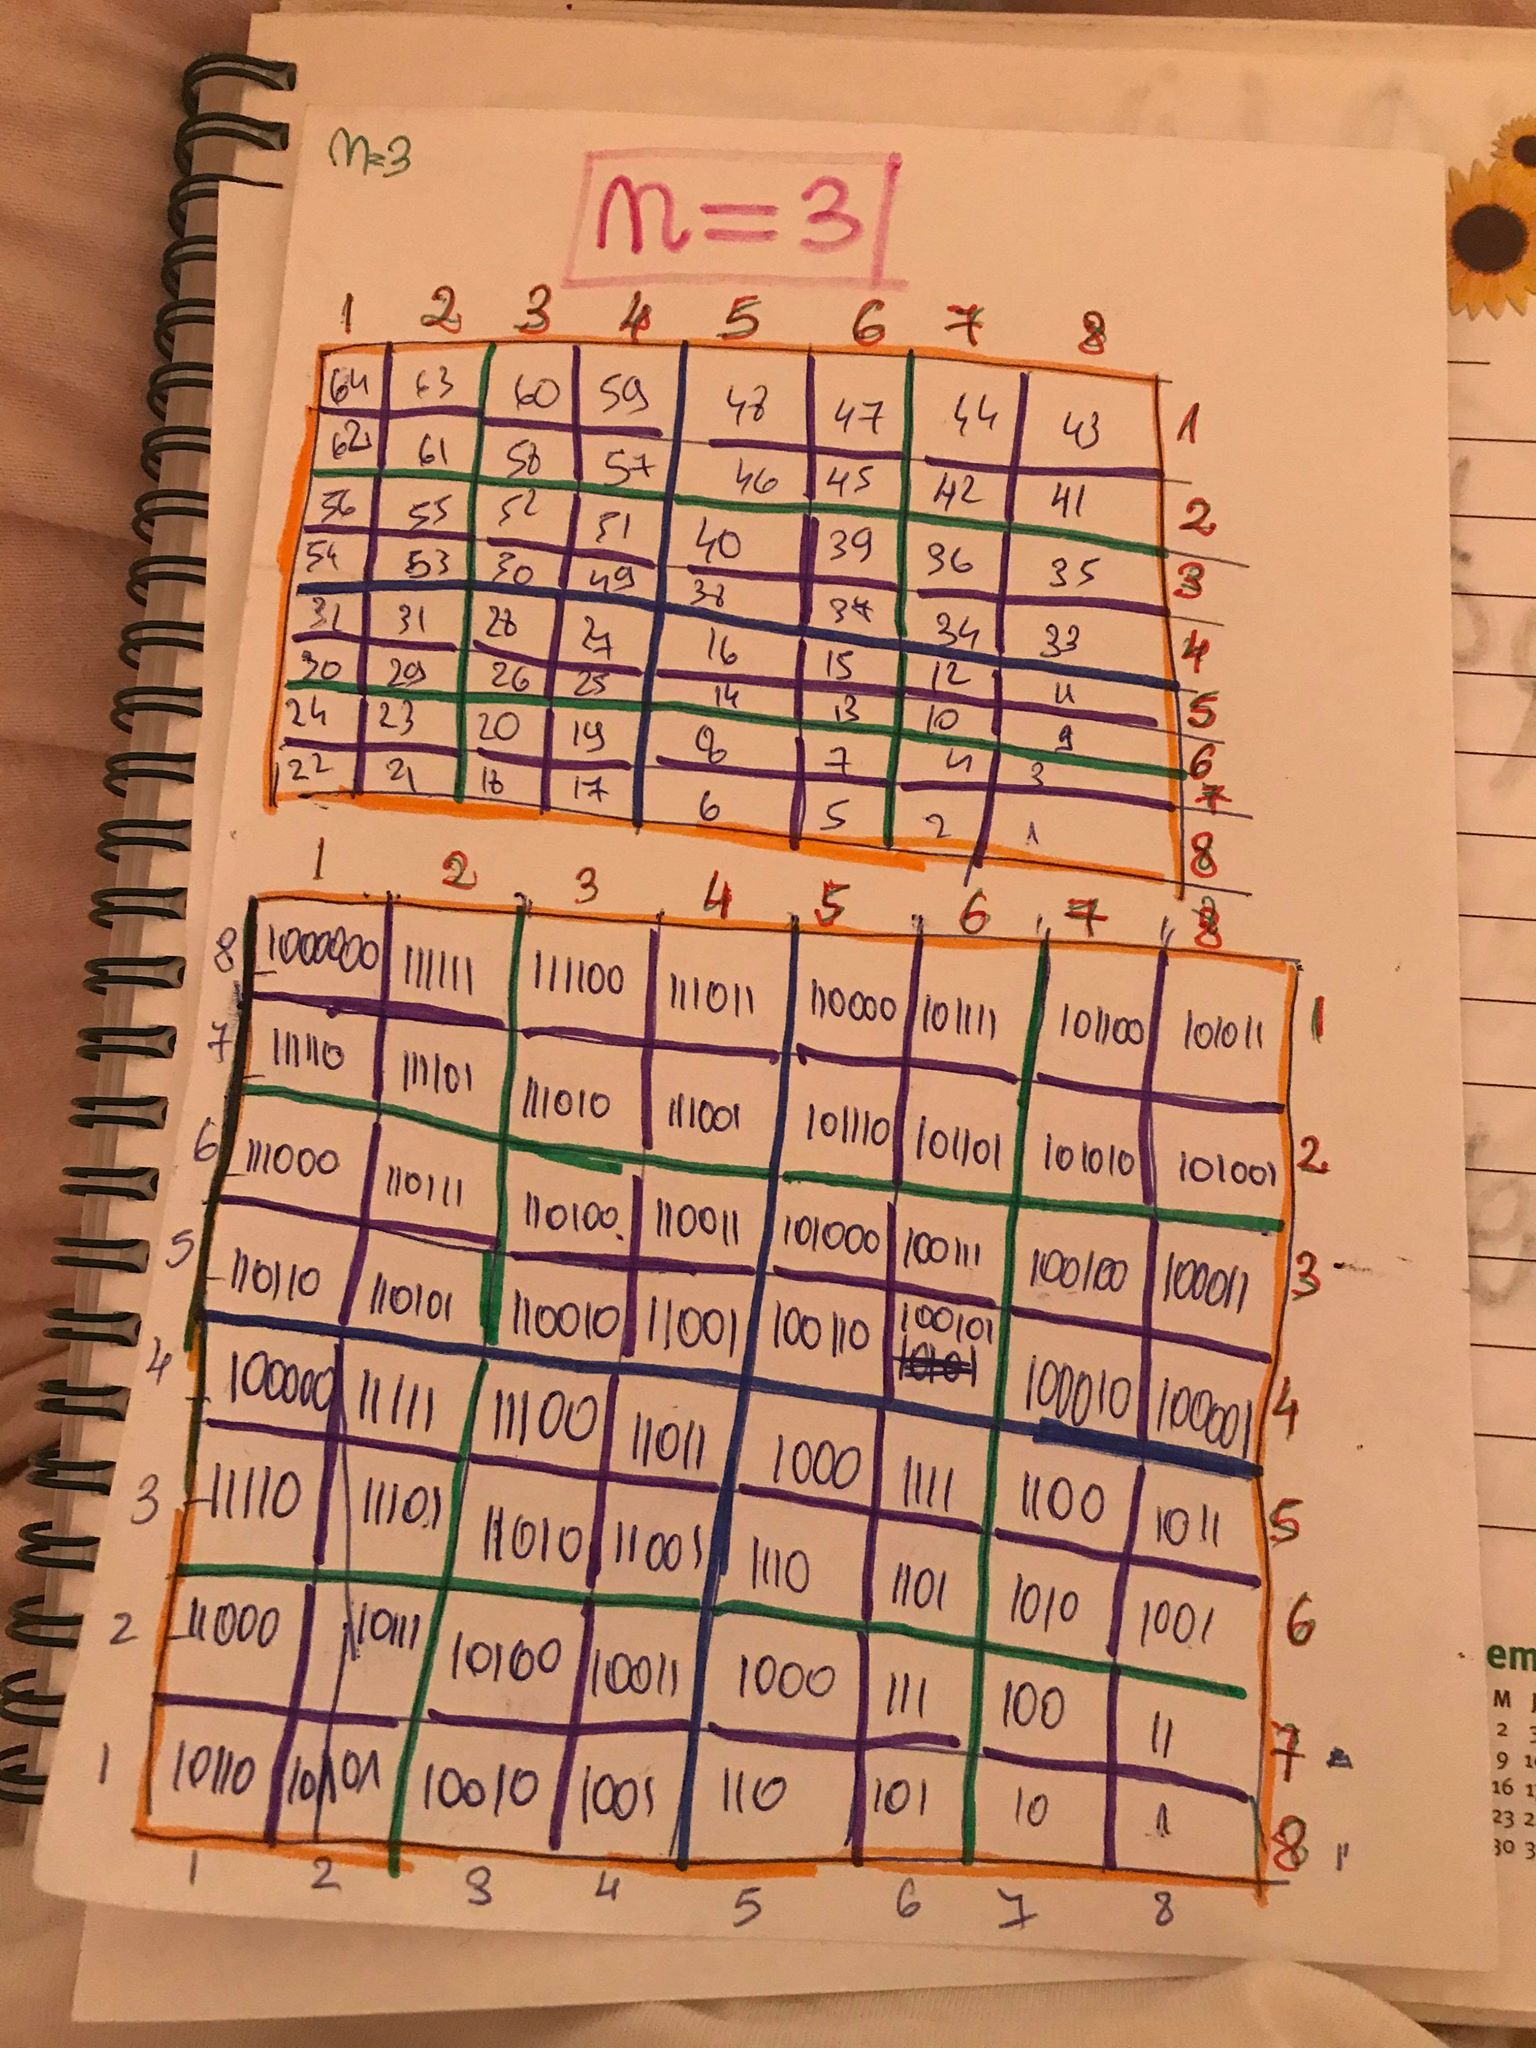 n=3
n=3
1 2 3 4 5 6 7 8
64 63 60 59 48 47 44 43 1
62 61 58 57 46 45 42 41 2
56 55 52 51 40 39 36 35 3
54 53 50 49 38 37 34 33 4
32 31 28 27 16 15 12 11 5
30 29 26 25 14 13 10 9 6
24 23 20 19 8 7 4 3 7
22 21 18 17 6 5 2 1 8
1 2 3 4 5 6 7 8
8 1000000 111111 111100 111011 110000 101111 101100 101011 1
7 111110 111101 111010 111001 101110 101101 101010 101001 2
6 111000 110111 110100 110011 101000 100111 100100 100011 3
5 110110 110101 110010 11001 100110 100101 100010 100001 4
10101
4 100000 11111 11100 11011 1000 1111 1100 1011 5
3 11110 11101 11010 11001 1110 1101 1010 1001 6
2 11000 10111 10100 10011 1000 111 100 11 7
1 10110 10101 10010 1001 110 101 10 1 8
1 2 3 4 5 6 7 8
em
M
2
9
16
23 2
30 3